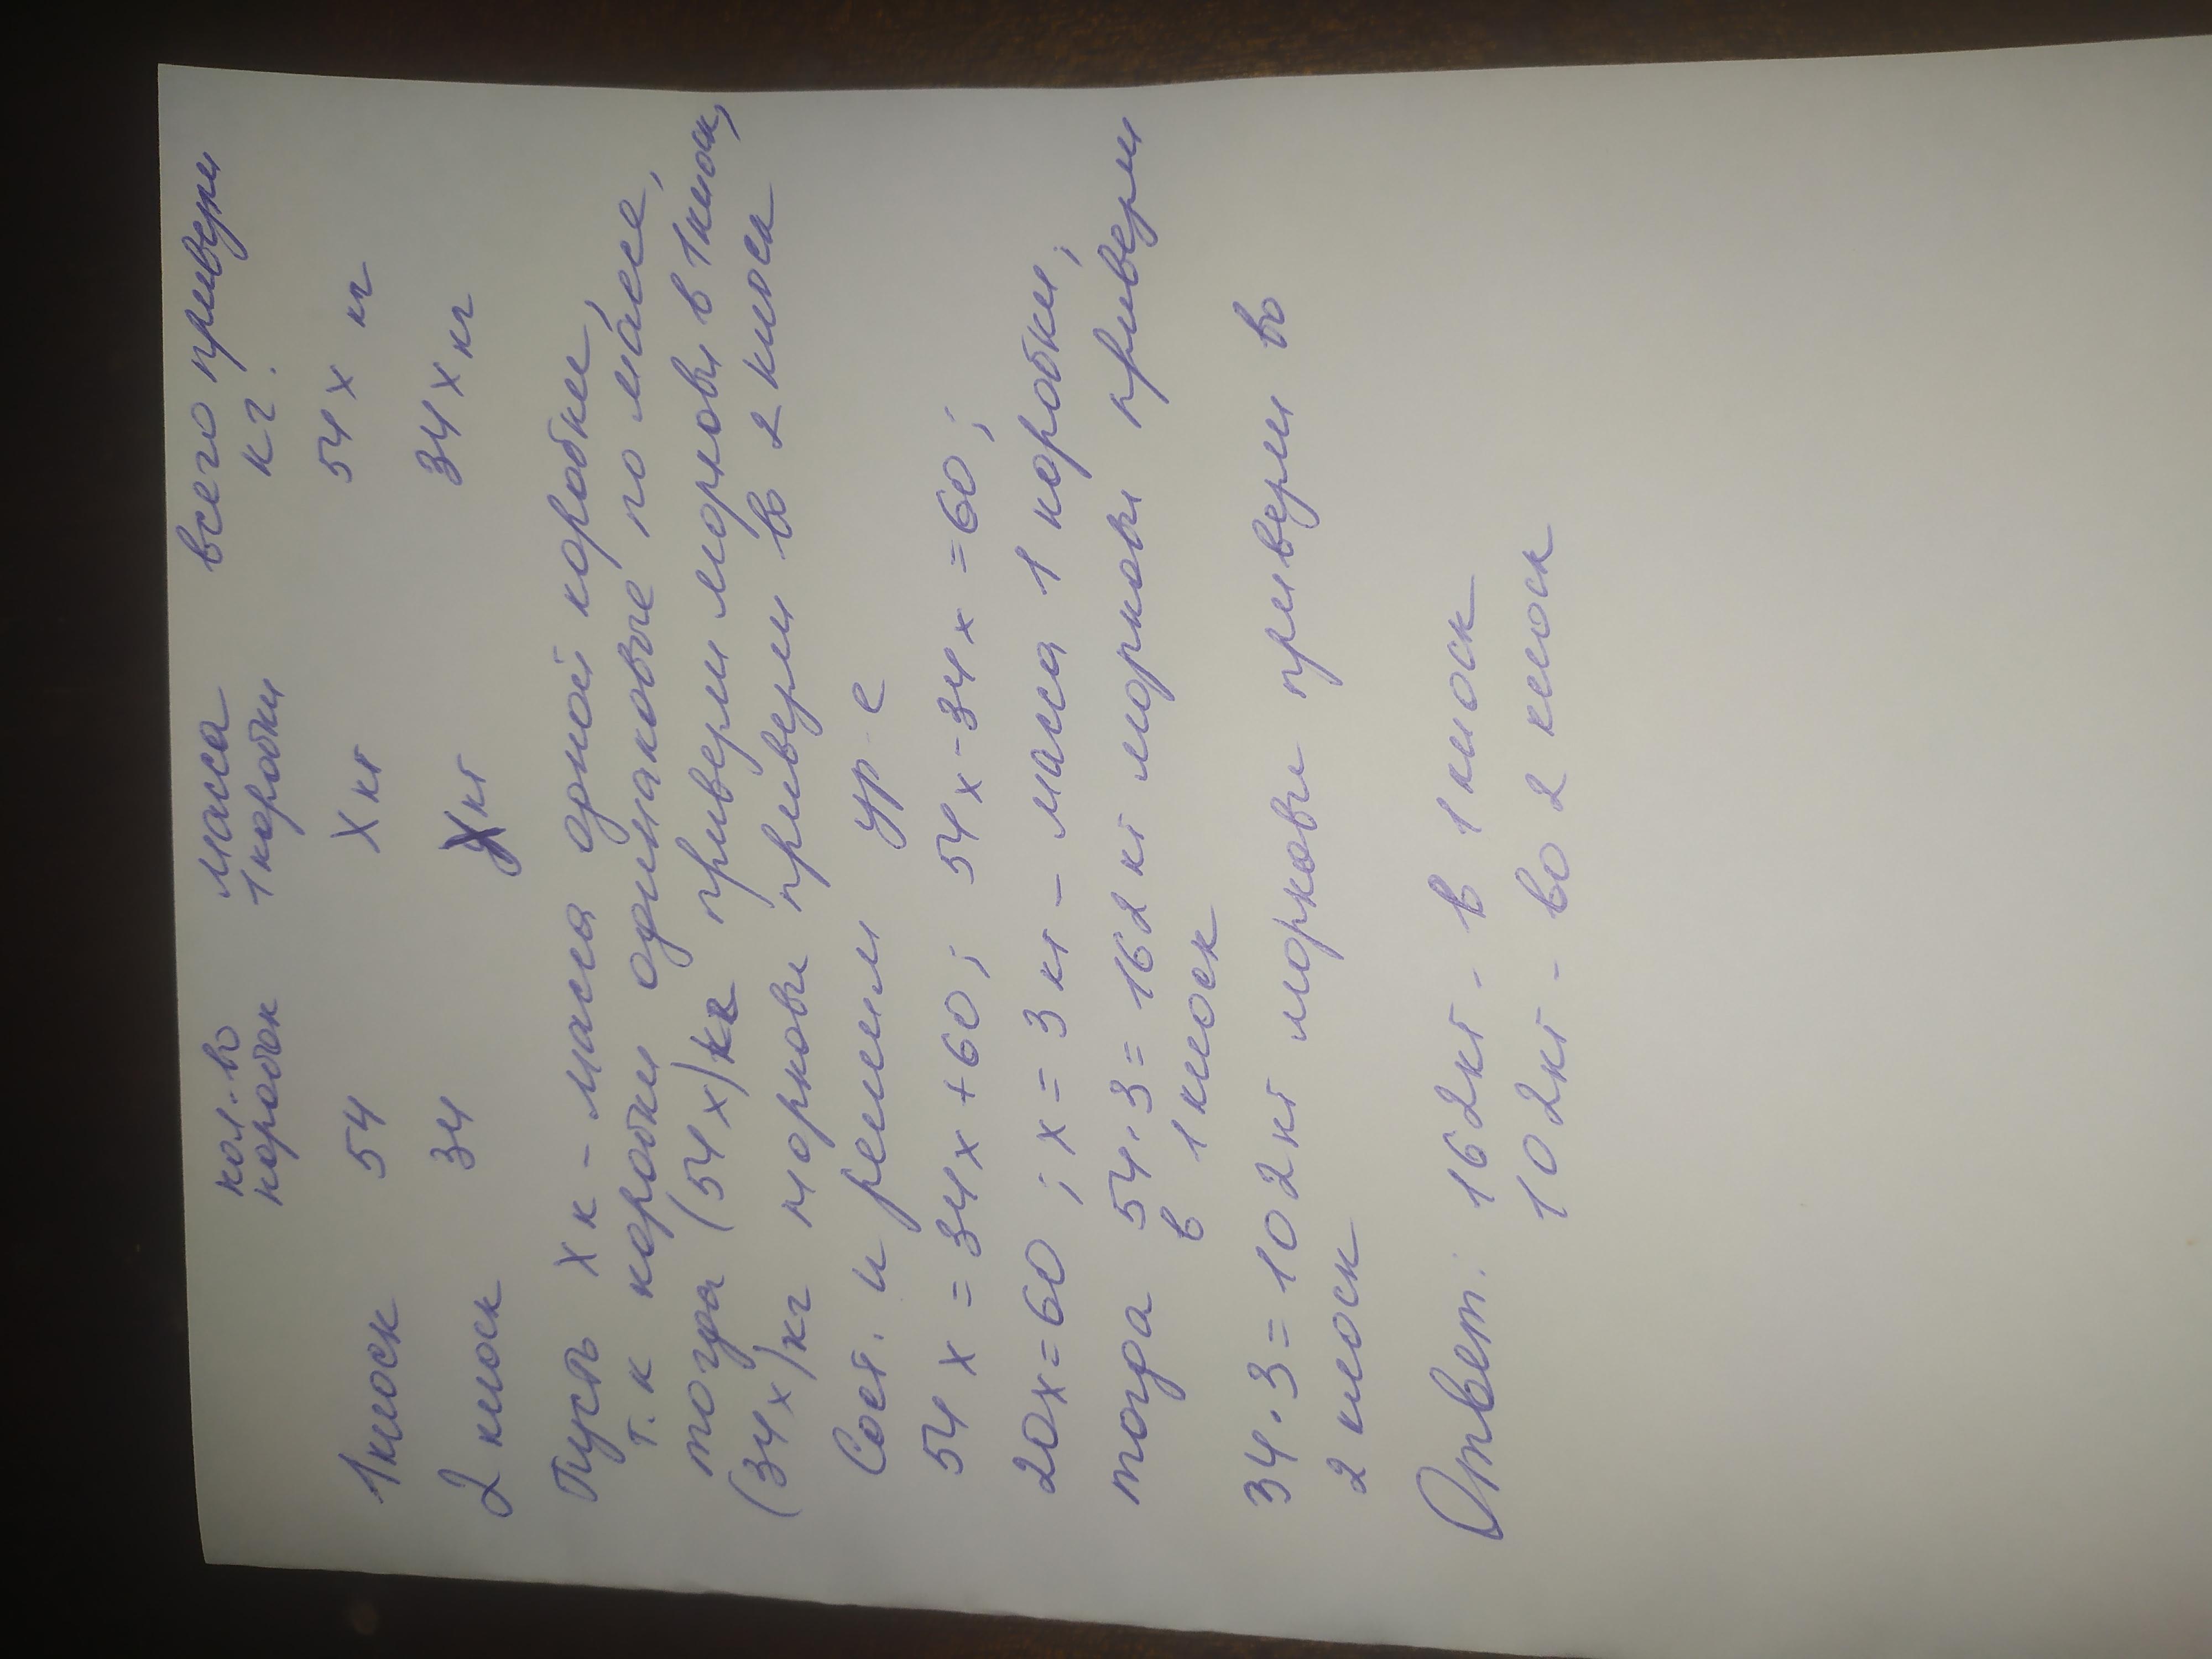 кол-во масса всего привезли
коробок 1 коробки кг.
1 киоск 54 х кг 54 х кг
2 киоск 34 х кг 34 х кг
Пусть х к - масса одной коробки,
т.к коробки одинаковые по массе,
тогда (54 х) кг привезли моркови в 1 киоск,
(34 х) кг моркови привезли во 2 киоск
Сост. и решим ур-е
54 х = 34 х + 60 ; 54 х - 34 х = 60 ;
20х = 60 ; х = 3 кг - масса 1 коробки ;
тогда 54 · 3 = 162 кг моркови привезли
в 1 киоск
34 · 3 = 102 кг моркови привезли во
2 киоск
Ответ: 162кг - в 1 киоск
102кг - во 2 киоск